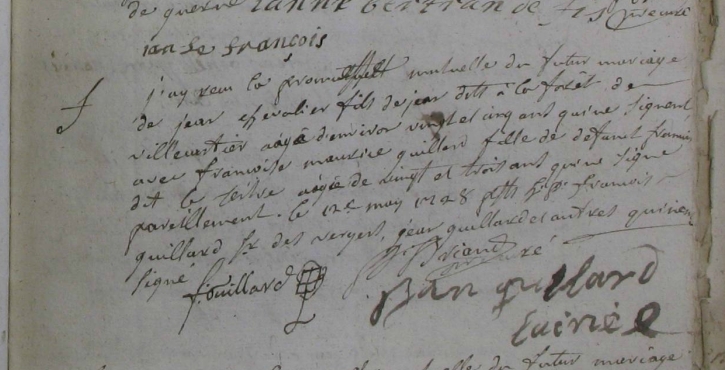 de guerre Janne bertran de
jan le françois
j'ay recu la promesse mutuelle du futur mariage
de jean chevalier fils de jean dits à la forêt de
villecartier aagé d'environ vingt et cinq ant qui ne signent
avec francoise maurice quillard fille de défunt francois
dit le tertre aagée de vingt et trois ant qui ne signe
pareillement. le 12e may 1748 francois
quillard Sr des vergers, jean quillard et autres qui ne
signé
f: quillard
Jan quillard
l'ainée
futur mariage